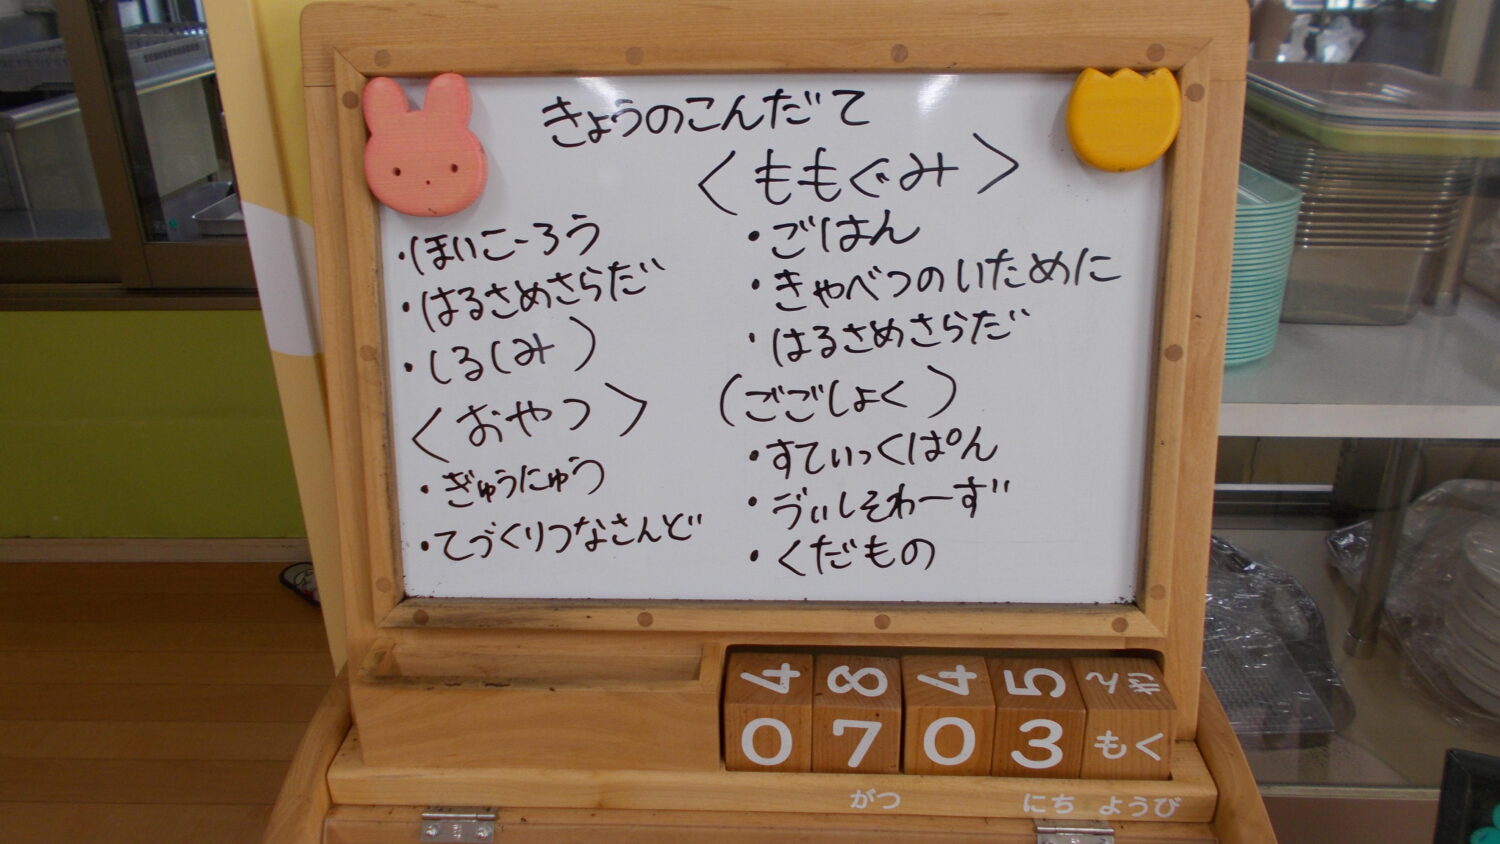 きょうのこんだて
・ほいこーろう
・はるさめさらだ
・しるしみ)
<おやつ>
・ぎゅうにゅう
・てづくりつなさんど
<ももぐみ>
・ごはん
・きゃべつのいために
・はるさめさらだ
(ごごしょく)
・すてぃっくぱん
・ゔぃしそわーず
・くだもの
4 8 4 5
07 03 もく
がつ にち ようび